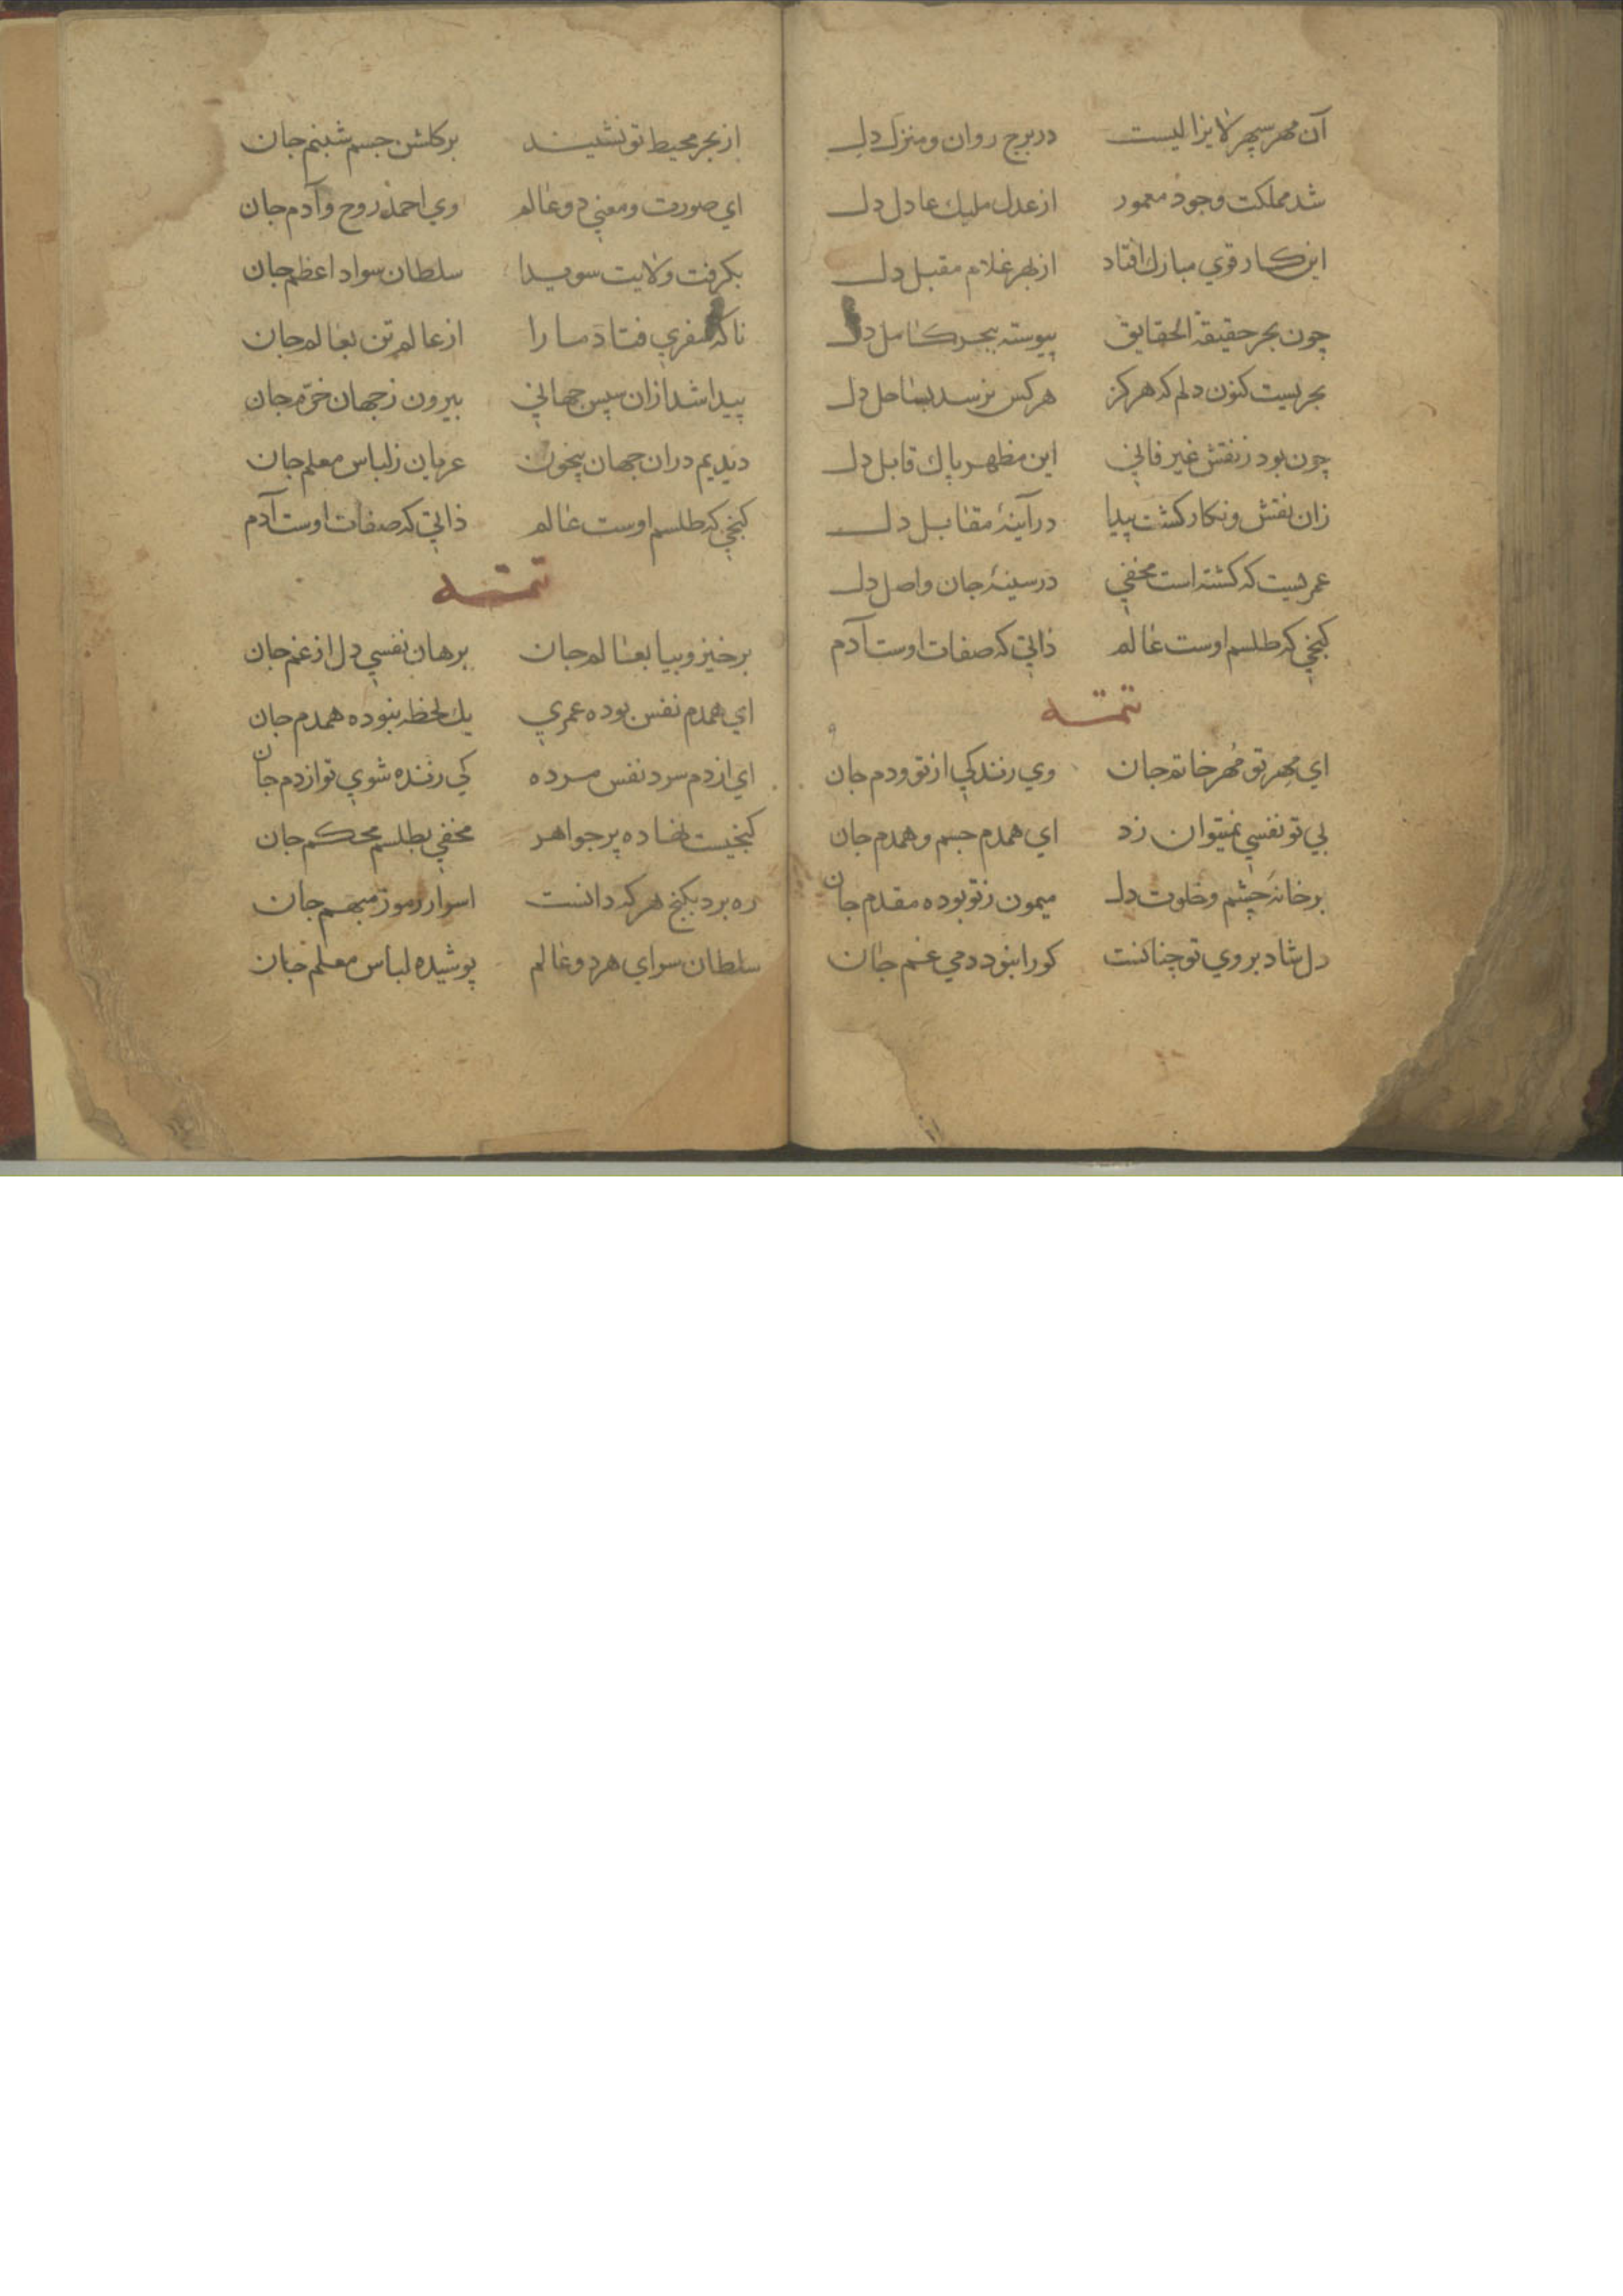 آن مهر سپهر لایزالیست در برج روان و منزل دل
شد مملکت وجود معمور از عدل ملیك عادل دل
این کار قوي مبارك افتاد از بهر غلام مقبل دل
چون بحر حقیقة الحقایق پیوسته ببحر کامل دل
بحریست کنون دلم که هرکز هرکس نرسد بساحل دل
چون بود ز نقش غیر فاني این مظهر پاك قابل دل
زان نقش و نکار کشت پیدا در آینهٔ مقابل دل
عمریست که کشته است مخفي در سینهٔ جان واصل دل
کنجي که طلسم اوست عالم ذاتي که صفات اوست آدم
تتمه
اي مهر تو مُهر خاتم جان وي زندکي از تو و دم جان
بي تو نفسي نمیتوان زد اي همدم جسم و همدم جان
بر خانهٔ چشم و خلوت دل میمون ز تو بوده مقدم جان
دل شاد بروي تو چنانست کورا نبود دمي غم جان
از بحر محیط تو نشیند بر کلشن جسم شبنم جان
اي صورت و معني دو عالم وي احمد روح و آدم جان
بکرفت ولایت سویدا سلطان سواد اعظم جان
ناکه سفري فتاد ما را از عالم تن بعالم جان
پیدا شد ازان سپس جهاني بیرون ز جهان خرّم جان
دیدیم دران جهان بیچون عریان ز لباس معلم جان
کنجي که طلسم اوست عالم ذاتي که صفات اوست آدم
تتمه
برخیز و بیا بعالم جان برهان نفسي دل از غم جان
اي همدم نفس بوده عمري یك لحظه نبوده همدم جان
اي از دم سرد نفس مرده کي زنده شوي تو از دم جان
کنجیست نهاده پر جواهر مخفي بطلسم محکم جان
ره برد بکنج هرکه دانست اسرار رموز مبهم جان
سلطان سراي هر دو عالم پوشیده لباس معلم جان